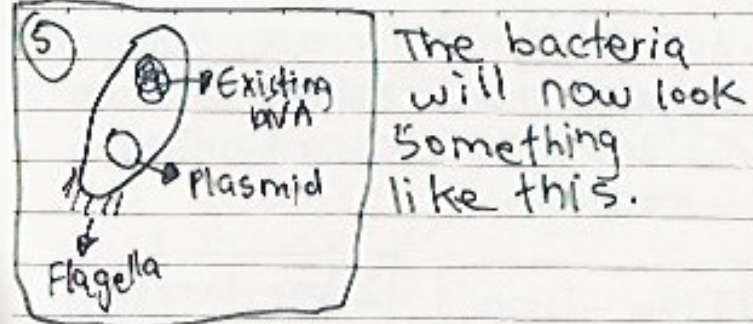 5
Existing
DNA
Plasmid
Flagella
The bacteria
will now look
something
like this.